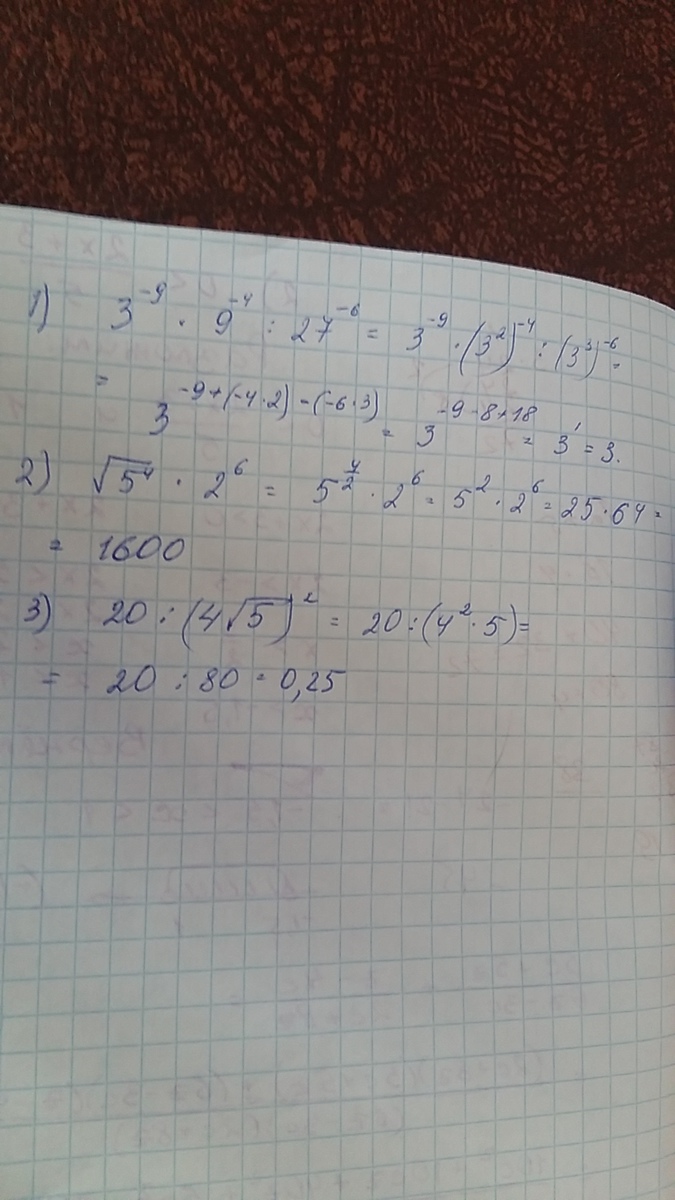 1) 3^-9 · 9^-4 : 27^-6 = 3^-9 · (3^2)^-4 : (3^3)^-6 =
= 3^-9+(-4·2)-(-6·3) = 3^-9-8+18 = 3^1 = 3.
2) √5^4 · 2^6 = 5^4/2 · 2^6 = 5^2 · 2^6 = 25 · 64 =
= 1600
3) 20 : (4√5)^2 = 20 : (4^2 · 5) =
= 20 : 80 = 0,25